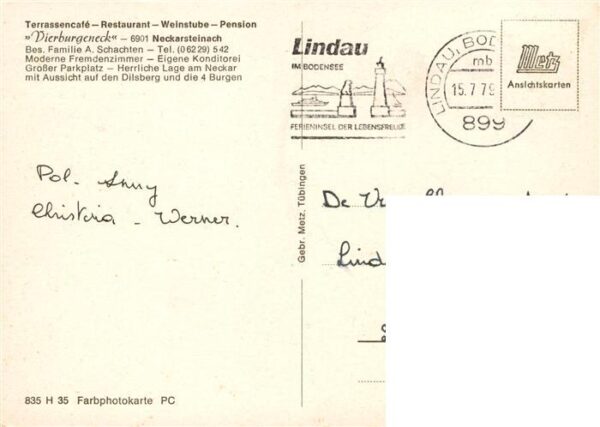 Terrassencafé – Restaurant – Weinstube – Pension
»Vierburgeneck« – 6901 Neckarsteinach
Bes. Familie A. Schachten – Tel. (0 62 29) 5 42
Moderne Fremdenzimmer – Eigene Konditorei
Großer Parkplatz – Herrliche Lage am Neckar
mit Aussicht auf den Dilsberg und die 4 Burgen
Lindau
IM BODENSEE
FERIENINSEL DER LEBENSFREUDE
LINDAU, BOD
mb
15.7.79
899
Metz
Ansichtskarten
Pol.
Christina - Werner.
Gebr. Metz, Tübingen
De
Lind
835 H 35 Farbphotokarte PC